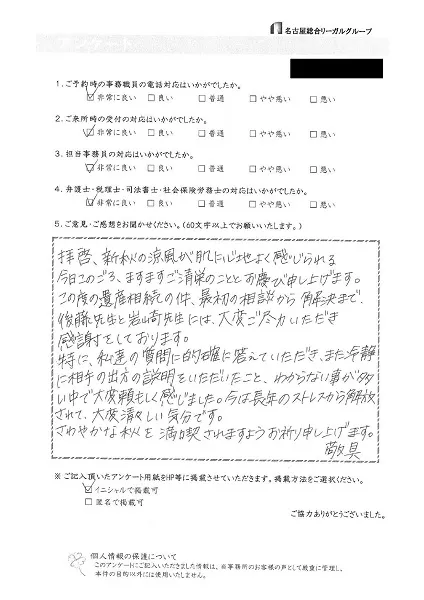 名古屋総合リーガルグループ
アンケート
1．ご予約時の事務職員の電話対応はいかがでしたか。
☑非常に良い □良い □普通 □やや悪い □悪い
2．ご来所時の受付の対応はいかがでしたか。
☑非常に良い □良い □普通 □やや悪い □悪い
3．担当事務員の対応はいかがでしたか。
☑非常に良い □良い □普通 □やや悪い □悪い
4．弁護士・税理士・司法書士・社会保険労務士の対応はいかがでしたか。
☑非常に良い □良い □普通 □やや悪い □悪い
5．ご意見・ご感想をお聞かせください。（60文字以上でお願いいたします。）
拝啓、新秋の涼風が肌に心地よく感じられる
今日このごろ、ますますご清栄のこととお慶び申し上げます。
この度の遺産相続の件、最初の相談から解決まで、
後藤先生と岩崎先生には、大変ご尽力いただき
感謝をしております。
特に、私達の質問に的確に答えていただき、また冷静
に相手の出方の説明をいただいたこと、わからない事が多
い中で大変頼もしく感じました。今は長年のストレスから解放
されて、大変清々しい気分です。
さわやかな秋を満喫されますようお祈り申し上げます。
敬具
※ ご記入頂いたアンケート用紙をHP等に掲載させていただきます。掲載方法をご選択ください。
☑イニシャルで掲載可
□匿名で掲載可
ご協力ありがとうございました。
個人情報の保護について
このアンケートにご記入いただきました情報は、当事務所のお客様の声として厳重に管理し、
本件の目的以外には使用いたしません。